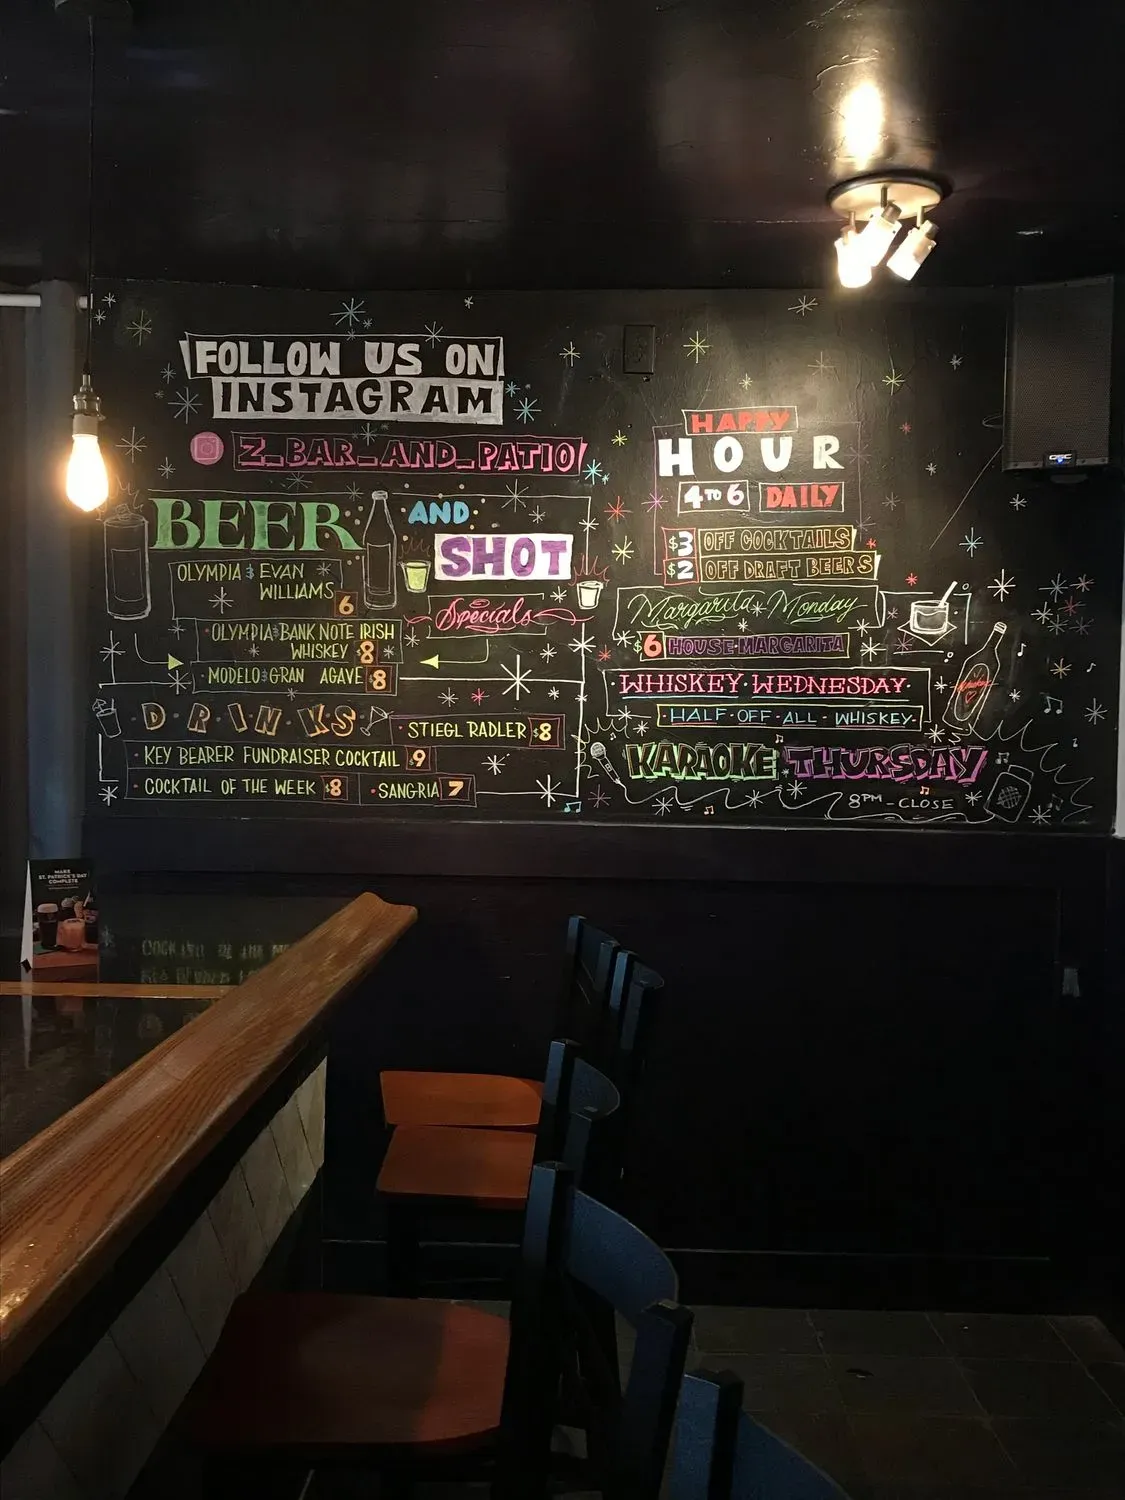 FOLLOW US ON
INSTAGRAM
Z_BAR_AND_PATIO
BEER AND
SHOT
Specials
OLYMPIA & EVAN
WILLIAMS 6
· OLYMPIA & BANK NOTE IRISH
WHISKEY $8
· MODELO & GRAN AGAVE $8
D·R·I·N·K·S
· STIEGL RADLER $8
· KEY BEARER FUNDRAISER COCKTAIL $9
· COCKTAIL OF THE WEEK $8
· SANGRIA 7
HAPPY
HOUR
4 TO 6 DAILY
$3 OFF COCKTAILS
$2 OFF DRAFT BEERS
Margarita Monday
$6 HOUSE MARGARITA
WHISKEY WEDNESDAY
HALF·OFF·ALL·WHISKEY
KARAOKE THURSDAY
8PM - CLOSE
QSC
MAKE
ST. PATRICK'S DAY
COMPLETE